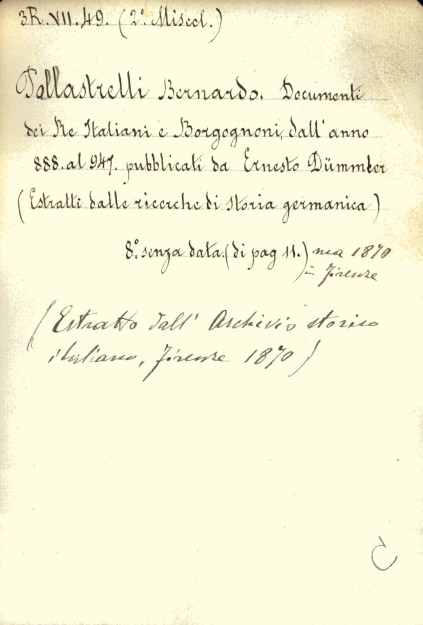 3R.VII.49. (2.° Miscel.)
Pallastrelli Bernardo. Documenti
dei Re Italiani e Borgognoni, dall'anno
888. al 947. pubblicati da Ernesto Dümmler
(Estratti dalle ricerche di storia germanica)
8.° senza data. (di pag 11.) ma 1870
= Firenze
(Estratto dall' Archivio storico
italiano, Firenze 1870)
C